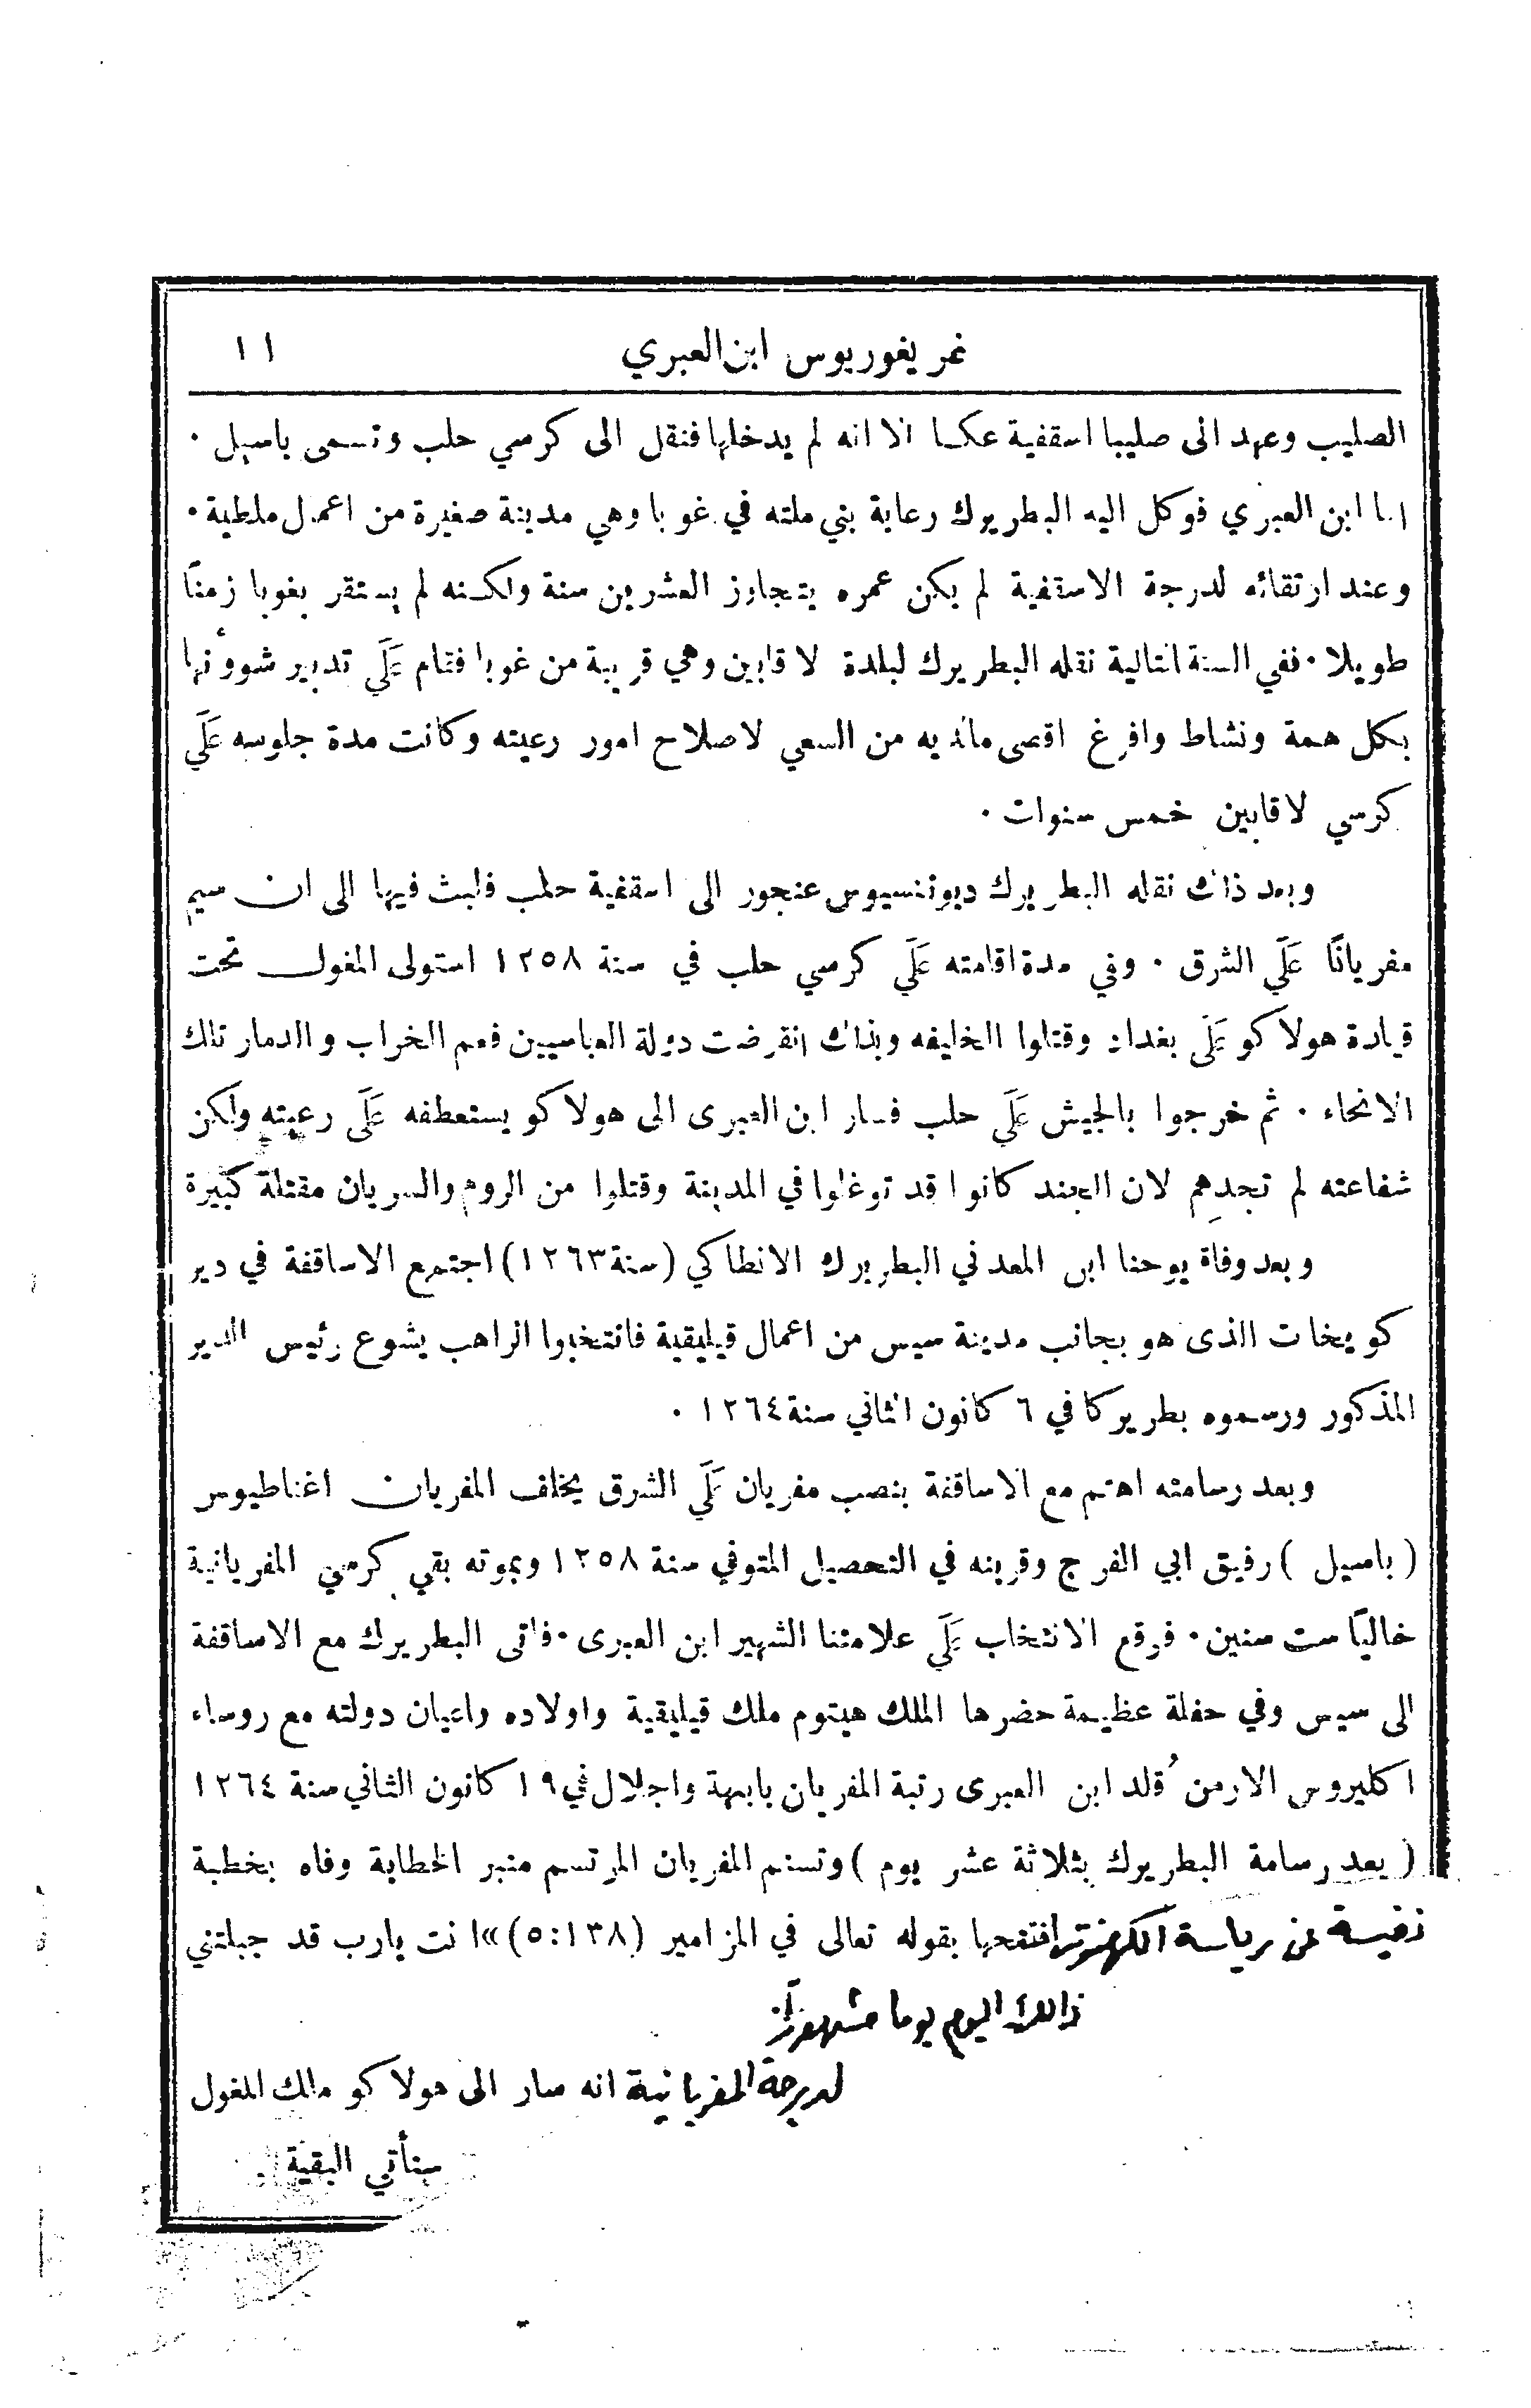 غريغوريوس ابن العبري ١١
الصليب وعهد الى صليبا اسقفية عكا الا انه لم يدخلها فنقل الى كرسي حلب وتسمى باسيل ·
اما ابن العبري فوكل اليه البطريرك رعاية بني ملته في غوبا وهي مدينة صغيرة من اعمال ملطية ·
وعند ارتقائه لدرجة الاسقفية لم يكن عمره يتجاوز العشرين سنة ولكنه لم يستقر بغوبا زمنًا
طويلا · ففي السنة التالية نقله البطريرك لبلدة لاقابين وهي قريبة من غوبا فقام عَلَى تدبير شوؤنها
بكل همة ونشاط وافرغ اقصى مالديه من السعي لاصلاح امور رعيته وكانت مدة جلوسه عَلَى
كرسي لاقابين خمس سنوات ·
وبعد ذلك نقله البطريرك ديونيسيوس عنجور الى اسقفية حلب فلبث فيها الى ان سيم
مفريانًا عَلَى الشرق · وفي مدة اقامته عَلَى كرسي حلب في سنة ١٢٥٨ استولى المغول تحت
قيادة هولاكو عَلَى بغداد وقتلوا الخليفه وبذلك انقرضت دولة العباسيين فعم الخراب والدمار تلك
الانحاء · ثم خرجوا بالجيش عَلَى حلب فسار ابن العبرى الى هولاكو يستعطفه عَلَى رعيته ولكن
شفاعته لم تجدهم لان الجند كانوا قد توغلوا في المدينة وقتلوا من الروم والسريان مقتلة كبيرة
وبعد وفاة يوحنا ابن المعدني البطريرك الانطاكي (سنة ١٢٦٣) اجتمع الاساقفة في دير
كويخات الذى هو بجانب مدينة سيس من اعمال قيليقية فانتخبوا الراهب يشوع رئيس الدير
المذكور ورسموه بطريركا في ٦ كانون الثاني سنة ١٢٦٤ ·
وبعد رسامته اهتم مع الاساقفة بنصب مفريان عَلَى الشرق يخلف المفريان اغناطيوس
( باسيل ) رفيق ابي الفرج وقرينه في التحصيل المتوفي سنة ١٢٥٨ وبموته بقي كرسي المفريانية
خاليًا ست سنين · فوقع الانتخاب عَلَى علامتنا الشهير ابن العبرى · فاتى البطريرك مع الاساقفة
الى سيس وفي حفلة عظيمة حضرها الملك هيتوم ملك قيليقية واولاده واعيان دولته مع روساء
اكليروس الارمن قُلد ابن العبرى رتبة المفريان بابهة واجلال في ١٩ كانون الثاني سنة ١٢٦٤
( بعد رسامة البطريرك بثلاثة عشر يوم ) وتسنم المفريان المرتسم منبر الخطابة وفاه بخطبة
نفيسة عن رياسة الكهنوت افتتحها بقوله تعالى في المزامير (١٣٨:٥) »انت يارب قد جبلتني
ذالك اليوم يوما مشهودًا
لدرجة المفريانية انه سار الى هولاكو مالك المغول
ستأتي البقية